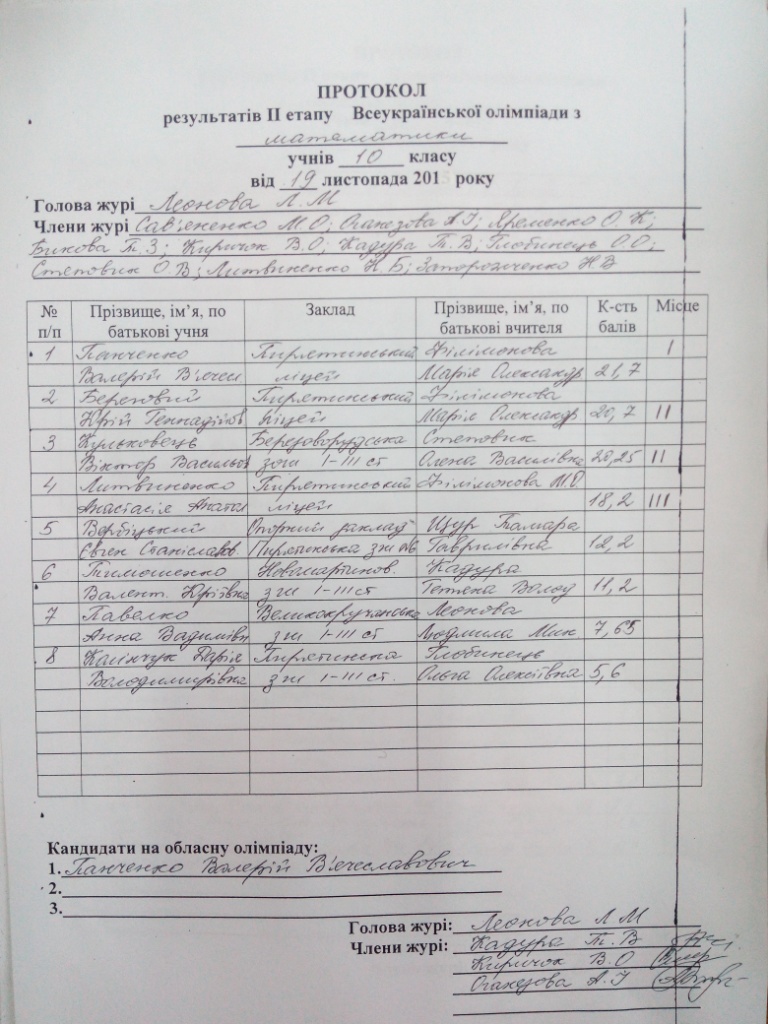 ПРОТОКОЛ
результатів ІІ етапу Всеукраїнської олімпіади з
математики
учнів 10 класу
від 19 листопада 2015 року
Голова журі Леонова Л.М
Члени журі Сав'яненко М.О; Оганезова А.І; Яременко О.К;
Бикова Т.З; Киричок В.О; Кадура Т.В; Глобинець О.О;
Степовик О.В; Литвиненко Н.Б; Запорожченко Н.В
№ п/п Прізвище, ім’я, по батькові учня Заклад Прізвище, ім’я, по батькові вчителя К-сть балів Місце
1 Панченко Пирятинський Філімонова I
Валерій В'ячесл ліцей Марія Олександр 21,7
2 Береговий Пирятинський Філімонова
Юрій Геннадійов ліцей Марія Олександр 20,7 II
3 Кульковець Березоворудська Степовик
Віктор Васильов зош I-III ст Олена Василівна 20,25 II
4 Литвиненко Пирятинський Філімонова М.О.
Анастасія Анатол ліцей 18,2 III
5 Вербіцький Опорний заклад Щур Тамара
Євген Станіславов. Пирятинська зш Гаврилівна 12,2
6 Тимошенко Новомартинов. Кадура
Валент. Юріївна зш I-III ст Тетяна Волод 11,2
7 Павелко Великокручанська Леонова
Анна Вадимівн зш I-III ст Людмила Мик 7,65
8 Дарія Пирятинська Глобинець
Володимирівна зш I-III ст. Ольга Олексіївна 5,6
Кандидати на обласну олімпіаду:
1. Панченко Валерій В'ячеславович
2.
3.
Голова журі: Леонова Л М
Члени журі: Кадура Т. В
Киричок В.О
Оганезова А.І